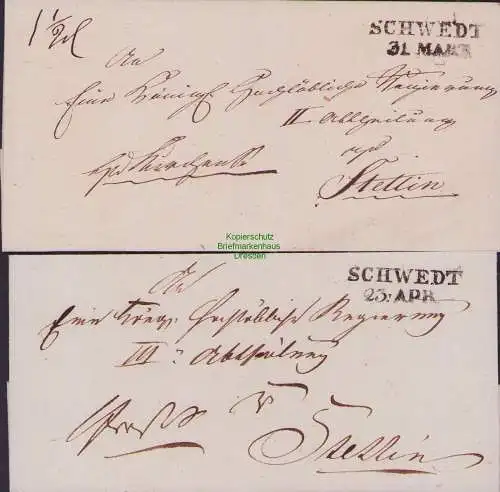 SCHWEDT
31 MART
An
Eine Königl Hochlöbliche Regierung
II Abtheilung
zu
Stettin
Kopierschutz
Briefmarkenhaus
Dresden
SCHWEDT
23. APR
An
Eine Königl. Hochlöbliche Regierung
III Abtheilung
Stettin